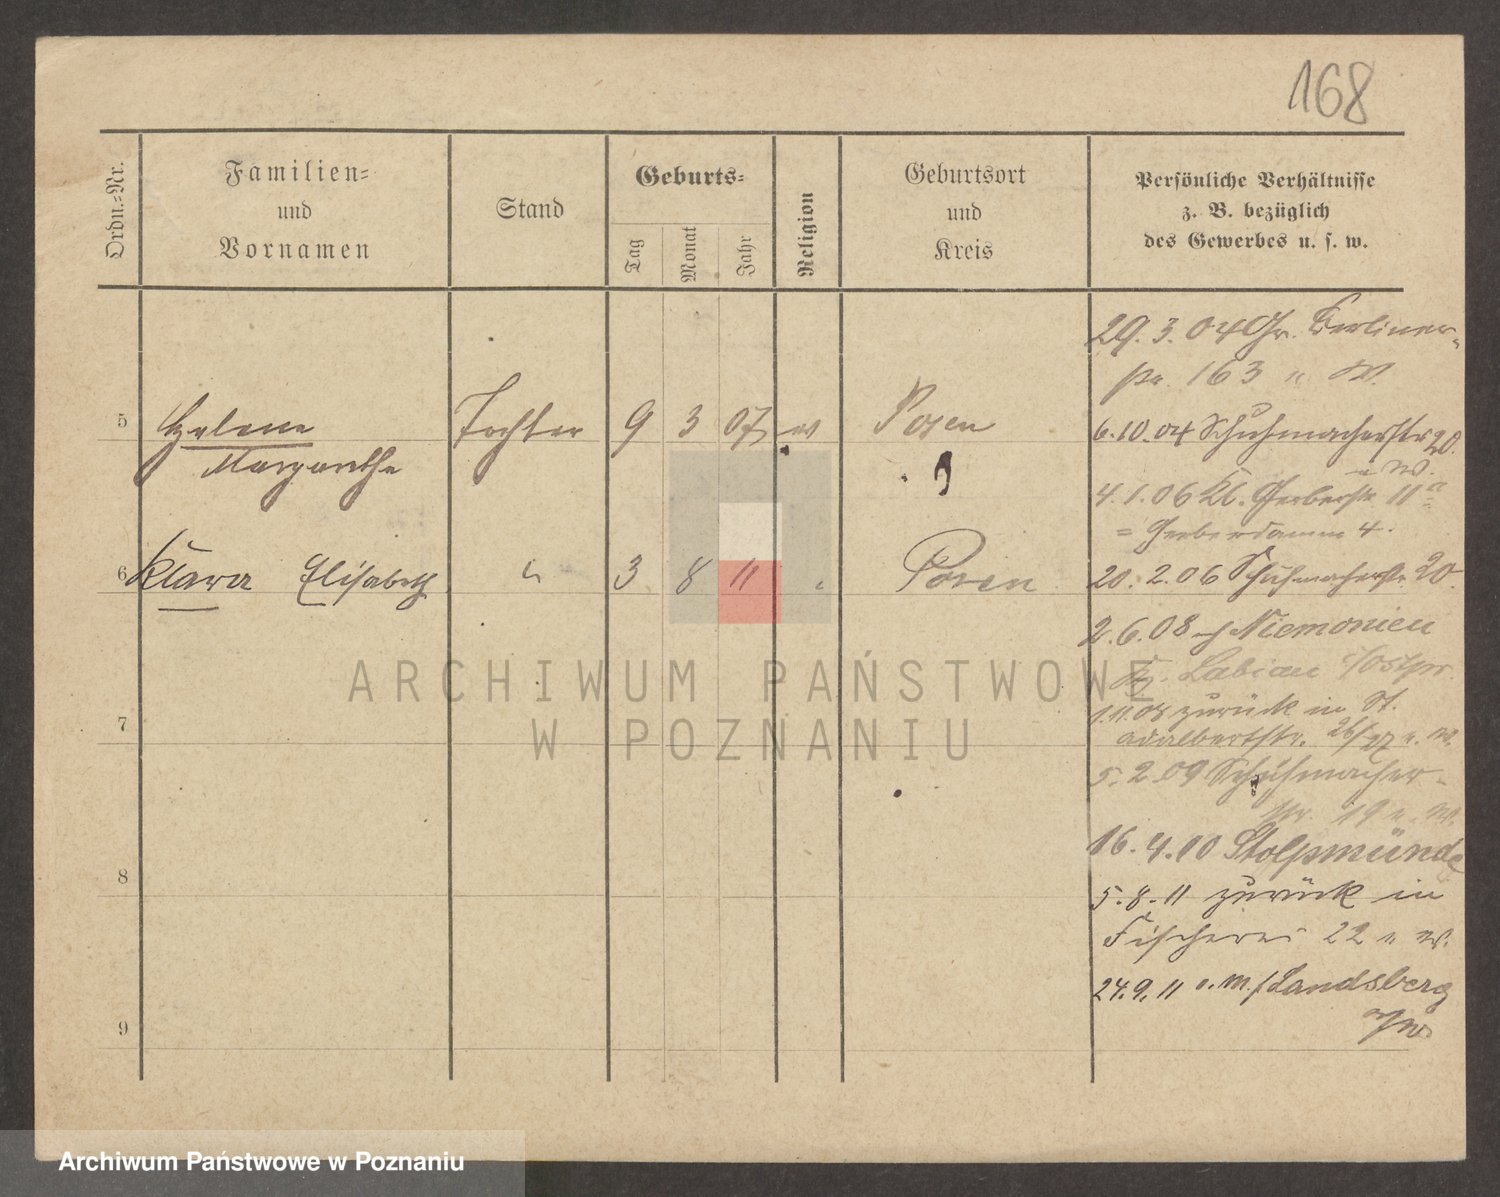 168
Ordn.-Nr.
Familien-
und
Vornamen
Stand
Geburts-
Tag
Monat
Jahr
Religion
Geburtsort
und
Kreis
Persönliche Verhältnisse
z. B. bezüglich
des Gewerbes u. s. w.
29. 3. 04 Gr. Berliner-
str. 163 n. W.
5 Helene Tochter 9 3 07 ev Posen
Margarethe
6.10.04 Schuhmacherstr 20.
n W.
4. 1. 06 Kl. Gerberstr 11a
= Gerberdamm 4.
6 Klara Elisabeth " 3 8 11 " Posen
20. 2. 06 Schuhmacherstr. 20.
2. 6. 08 Niemonien
Labiau /Ostpr.
1.11.08 zurück in St.
Adalbertstr. 26/27 n. W.
5. 2. 09 Schuhmacher-
str. 19 n. W.
16. 4. 10 Stolpmünde
5. 8. 11 zurück in
Fischerei 22 n W.
24. 9. 11 Landsberg
a/W.
7
8
9
ARCHIWUM PAŃSTWOWE
W POZNANIU
Archiwum Państwowe w Poznaniu